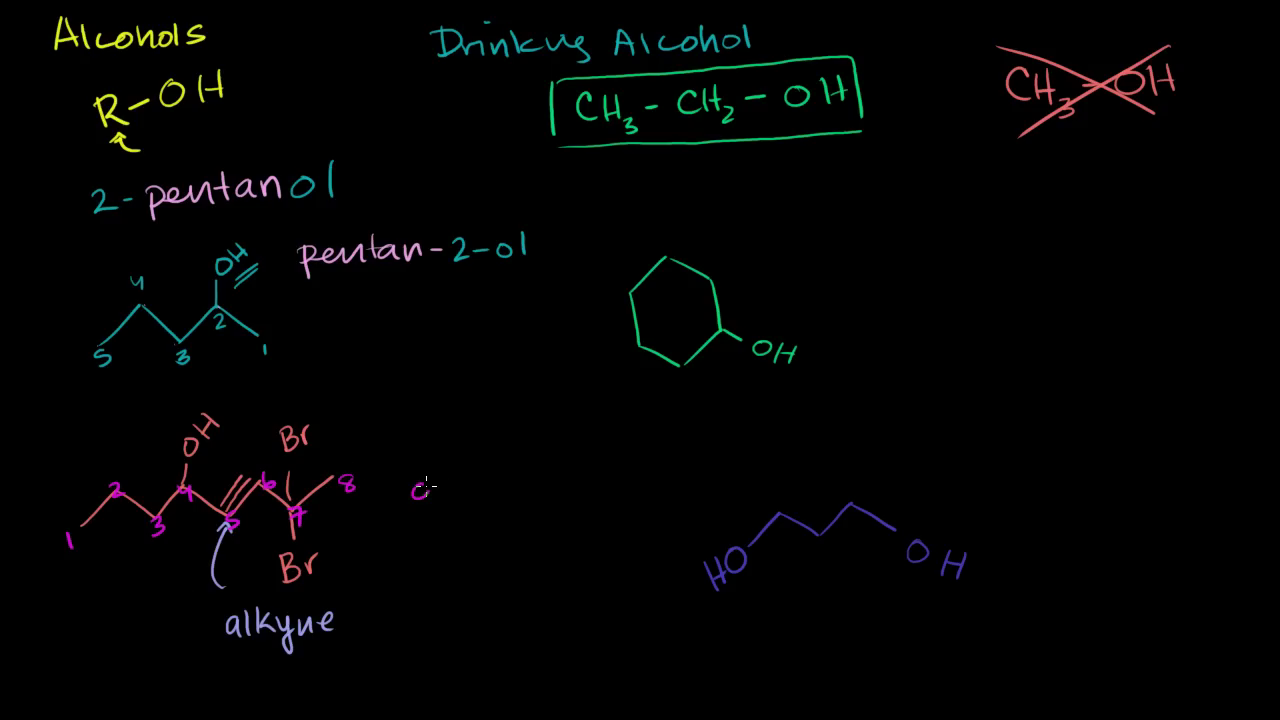 Alcohols
Drinking Alcohol
R-OH
CH3 - CH2 - OH
CH3 - OH
2-pentanol
pentan-2-ol
OH
4
2
5
3
1
OH
OH
Br
2
4
6
8
1
3
5
7
Br
HO
OH
alkyne